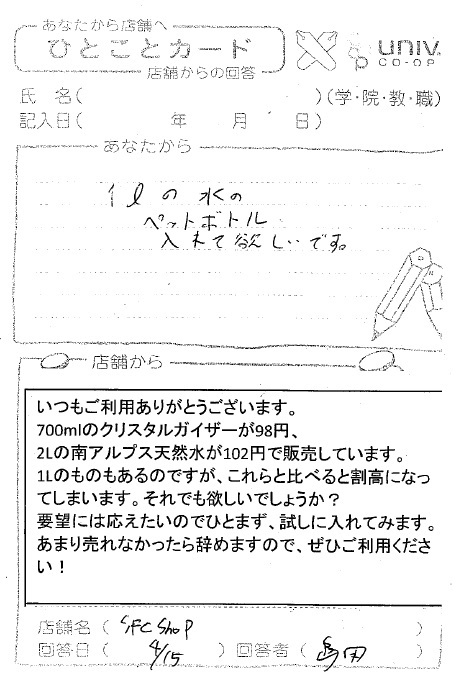 あなたから店舗へ
ひとことカード
店舗からの回答
UNIV.
CO-OP
氏 名( )(学・院・教・職)
記入日( 年 月 日)
あなたから
1lの水の
ペットボトル
入れて欲しいです。
店舗から
いつもご利用ありがとうございます。
700mlのクリスタルガイザーが98円、
2Lの南アルプス天然水が102円で販売しています。
1Lのものもあるのですが、これらと比べると割高になっ
てしまいます。それでも欲しいでしょうか?
要望には応えたいのでひとまず、試しに入れてみます。
あまり売れなかったら辞めますので、ぜひご利用くださ
い!
店舗名( SFC Shop )
回答日( 4/15 )回答者( 島田 )